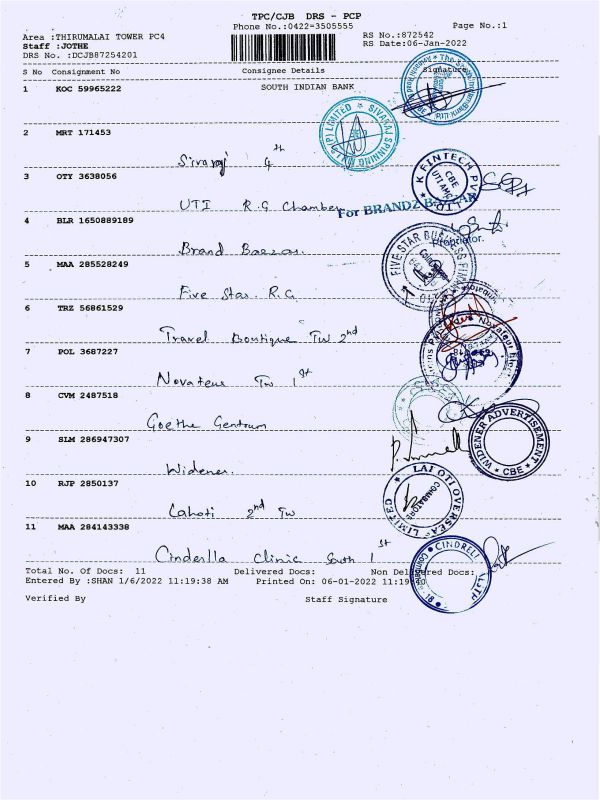 TPC/CJB DRS - PCP
Phone No.:0422=3505555
Page No.:1
Area :THIRUMALAI TOWER PC4
RS No.:872542
Staff :JOTHE
RS Date:06-Jan-2022
DRS No. :DCJB87254201
S No Consignment No Consignee Details Signature
1 KOC 59965222 SOUTH INDIAN BANK
2 MRT 171453
(P) LIMITED * SIVARAJ SPINNING MILLS
Sivaraj 4th
3 OTY 3638056
K FINTECH PVT LTD
CBE
UTI AMC
UTI R.G Chamber
For BRANDZ
4 BLR 1650889189
Proprietor.
Brand
5 MAA 285528249
FIVE STAR BUSINESS
Five Star. R.G
6 TRZ 56861529
Travel Boutique TW 2nd
7 POL 3687227
Novateur TW 1st
8 CVM 2487518
Goethe Gentrum
9 SLM 286947307
WIDENER ADVERTISEMENT
* CBE *
Widener.
10 RJP 2850137
OVERSEAS LIMITED
COIMBATORE
Lahoti 2nd TW
11 MAA 284143338
Cinderlla Clinic South 1st
CINDRELL
Total No. Of Docs: 11 Delivered Docs: Non Delivered Docs:
Entered By :SHAN 1/6/2022 11:19:38 AM Printed On: 06-01-2022 11:19:40
Verified By Staff Signature